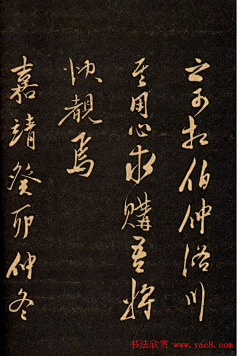 之可相伯仲洛川
其用心求購吾將
快覩焉
嘉靖癸卯仲冬
书法欣赏
www.yac8.com